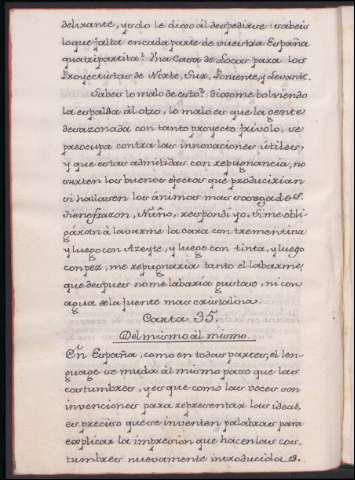 delirante, yo do le digo al despedirse: sabeis
lo que falta en cada parte de vuestra España
quatripartita? Una Casa de Locos para los
Proyectistas de Norte, Sur, Poniente, y Levante.
Sabes lo malo de esto? dixome bolviendo
la espalda al otro, lo malo es que la gente
desazonada con tanto proyecto frivolo, se
preocupa contra las innovaciones útiles;
y que estas admitidas con repugnancia, no
surten los buenos efectos que producirian
si hallasen los ánimos mas sosegados.
Tienes razon, Nuño, respondi yo. Si me obli-
gáran á lavarme la cara con trementina
y luego con Azeyte, y luego con tinta, y luego
con pez, me repugnaria tanto el labarme,
que despues no me labaría gustoso, ni con
agua de la fuente mas cristalina.
Carta 35.
Del mismo al mismo.
En España, como en todas partes, el len-
guage se muda al mismo paso que las
costumbres, y es que como las voces son
invenciones para representar las ideas,
es preciso que se inventen palabras para
explicar la impresion que hacen las cos-
tumbres nuevamente introducidas.